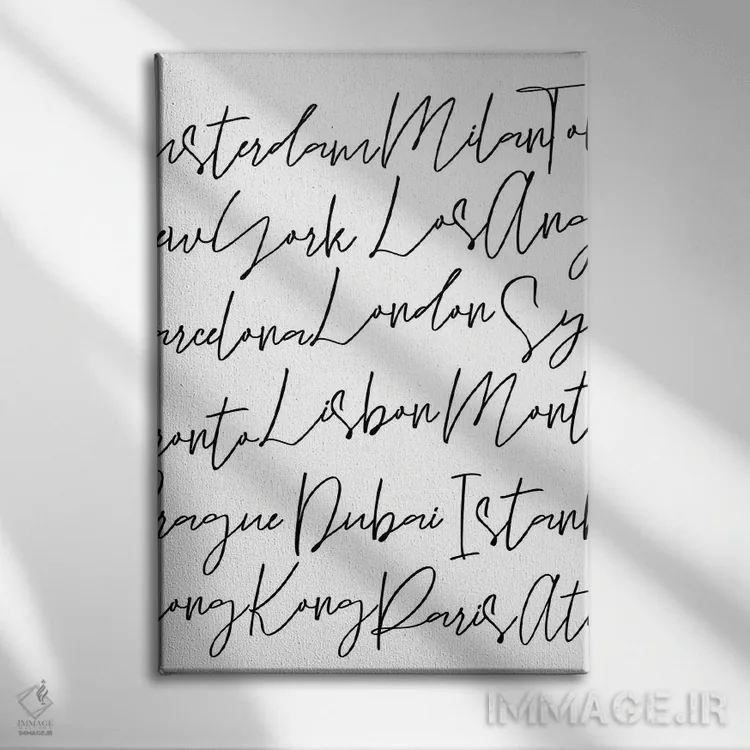 msterdam Milan To
ew York Los Ang
arcelona London Sy
ronto Lisbon Mont
rague Dubai Istan
ong Kong Paris At
IMMAGE
IMMAGE.IR
IMMAGE.IR